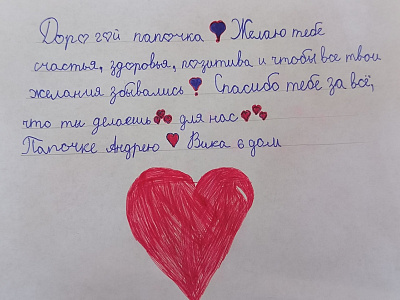 Дорогой папочка! Желаю тебе
счастья, здоровья, позитива и чтобы все твои
желания збывались! Спасибо тебе за всё,
что ты делаешь для нас
Папочке Андрею Вика в дом